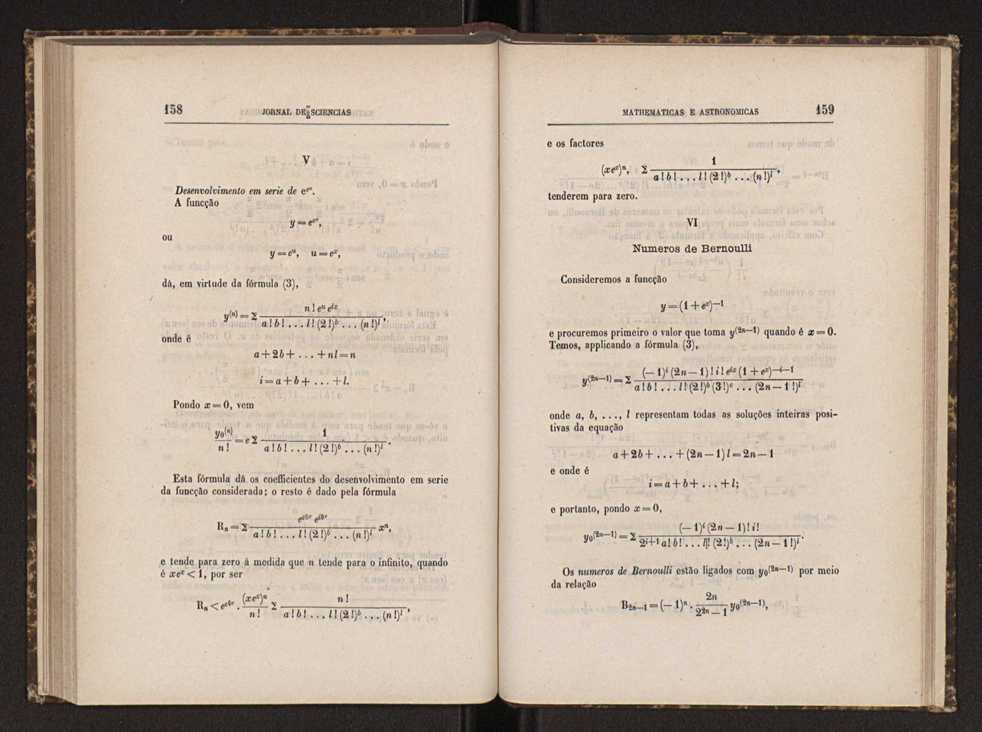 158 JORNAL DE SCIENCIAS
V
Desenvolvimento em serie de e^{e^x}.
A funcção
y = e^{e^x},
ou
y = e^u, u = e^x,
dá, em virtude da fórmula (3),
y^{(n)} = Σ \frac{n! e^u e^{ix}}{a! b! . . . l! (2!)^b . . . (n!)^l},
onde é
a + 2b + . . . + nl = n
i = a + b + . . . + l.
Pondo x = 0, vem
\frac{y_0^{(n)}}{n!} = e Σ \frac{1}{a! b! . . . l! (2!)^b . . . (n!)^l}.
Esta fórmula dá os coefficientes do desenvolvimento em serie
da funcção considerada; o resto é dado pela fórmula
R_n = Σ \frac{e^{e^{θx}} e^{iθx}}{a! b! . . . l! (2!)^b . . . (n!)^l} x^n,
e tende para zero á medida que n tende para o infinito, quando
é xe^x < 1, por ser
R_n < e^{e^{θx}} . \frac{(xe^x)^n}{n!} Σ \frac{n!}{a! b! . . . l! (2!)^b . . . (n!)^l},
MATHEMATICAS E ASTRONOMICAS 159
e os factores
(xe^x)^n, Σ \frac{1}{a! b! . . . l! (2!)^b . . . (n!)^l},
tenderem para zero.
VI
Numeros de Bernoulli
Consideremos a funcção
y = (1 + e^x)^{—1}
e procuremos primeiro o valor que toma y^{(2n—1)} quando é x = 0.
Temos, applicando a fórmula (3),
y^{(2n—1)} = Σ \frac{(— 1)^i (2n — 1)! i! e^{ix} (1 + e^x)^{—i—1}}{a! b! . . . l! (2!)^b (3!)^c . . . (2n — 1!)^l}
onde a, b, . . ., l representam todas as soluções inteiras posi-
tivas da equação
a + 2b + . . . + (2n — 1) l = 2n — 1
e onde é
i = a + b + . . . + l;
e portanto, pondo x = 0,
y_0^{(2n—1)} = Σ \frac{(— 1)^i (2n — 1)! i!}{2^{i+1} a! b! . . . l! (2!)^b . . . (2n — 1!)^l}.
Os numeros de Bernoulli estão ligados com y_0^{(2n—1)} por meio
da relação
B_{2n—1} = (— 1)^n . \frac{2n}{2^{2n} — 1} y_0^{(2n—1)},